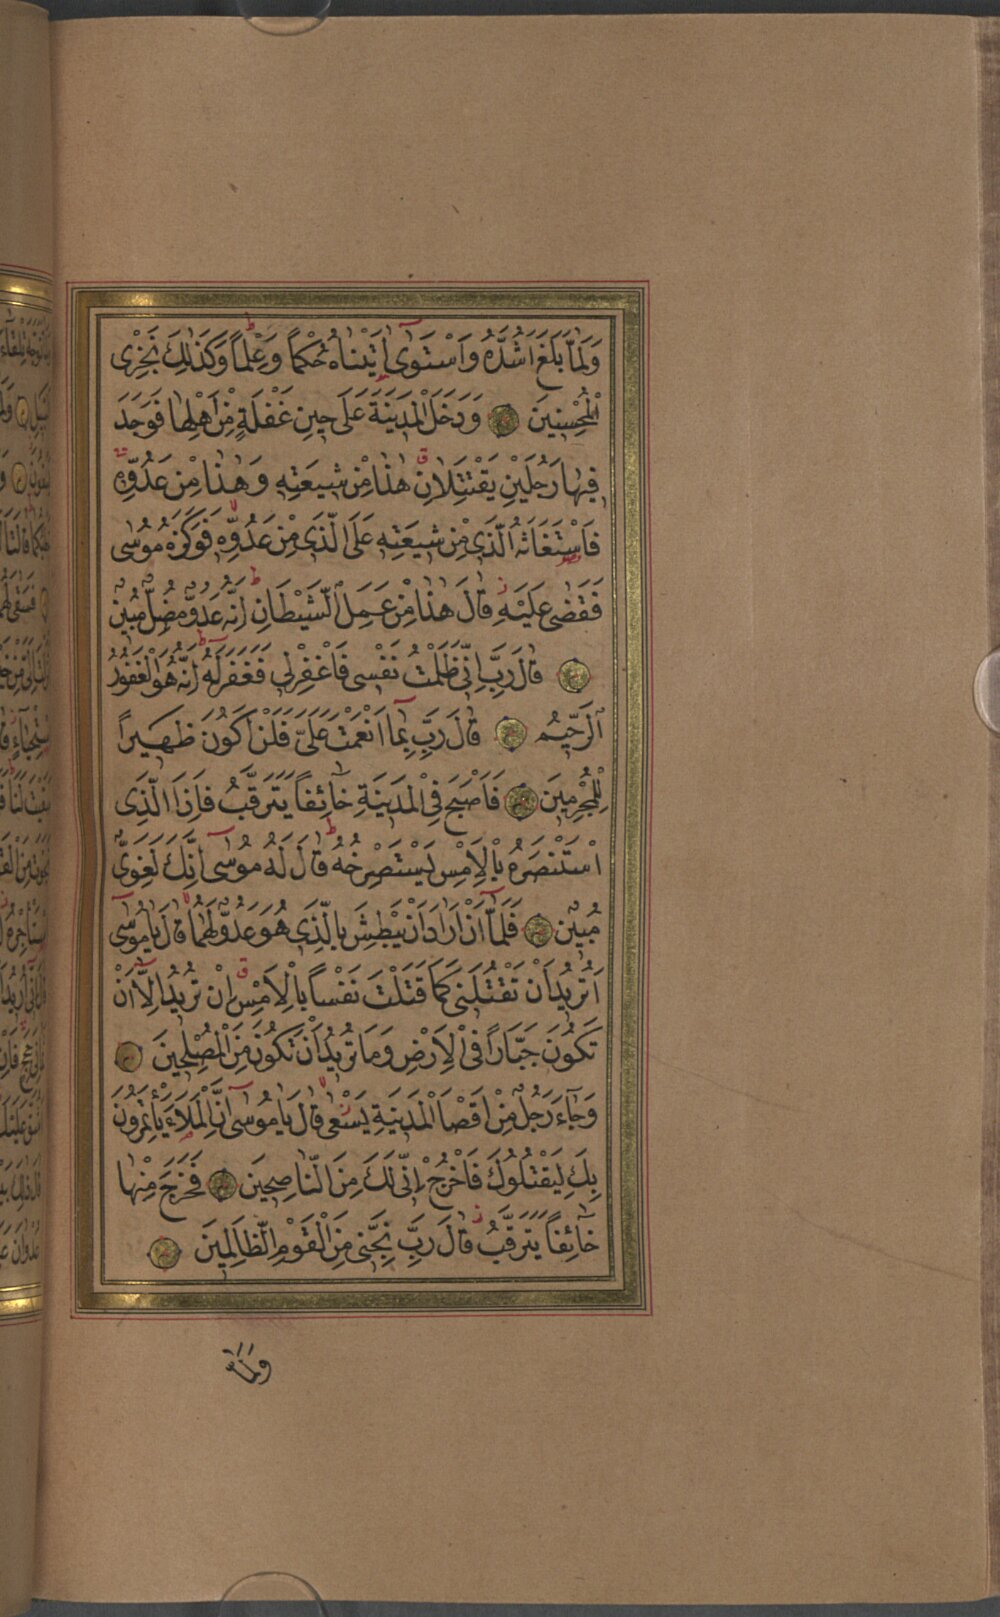 وَلَمَّا بَلَغَ اَشُدَّهُ وَاسْتَوٰٓى اٰتَيْنَاهُ حُكْمًا وَعِلْمًا وَكَذٰلِكَ نَجْزِى
الْمُحْسِنِينَ وَدَخَلَ الْمَدِينَةَ عَلٰى حِينِ غَفْلَةٍ مِنْ اَهْلِهَا فَوَجَدَ
فِيهَا رَجُلَيْنِ يَقْتَتِلَانِ هٰذَا مِنْ شِيعَتِهِ وَهٰذَا مِنْ عَدُوِّهِ
فَاسْتَغَاثَهُ الَّذِى مِنْ شِيعَتِهِ عَلَى الَّذِى مِنْ عَدُوِّهِ فَوَكَزَهُ مُوسٰى
فَقَضٰى عَلَيْهِ قَالَ هٰذَا مِنْ عَمَلِ الشَّيْطَانِ اِنَّهُ عَدُوٌّ مُضِلٌّ مُبِينٌ
قَالَ رَبِّ اِنِّى ظَلَمْتُ نَفْسِى فَاغْفِرْ لِى فَغَفَرَ لَهُ اِنَّهُ هُوَ الْغَفُورُ
الرَّحِيمُ قَالَ رَبِّ بِمَٓا اَنْعَمْتَ عَلَىَّ فَلَنْ اَكُونَ ظَهِيرًا
لِلْمُجْرِمِينَ فَاَصْبَحَ فِى الْمَدِينَةِ خَٓائِفًا يَتَرَقَّبُ فَاِذَا الَّذِى
اسْتَنْصَرَهُ بِالْاَمْسِ يَسْتَصْرِخُهُ قَالَ لَهُ مُوسٰٓى اِنَّكَ لَغَوِىٌّ
مُبِينٌ فَلَمَّٓا اَنْ اَرَادَ اَنْ يَبْطِشَ بِالَّذِى هُوَ عَدُوٌّ لَهُمَا قَالَ يَا مُوسٰٓى
اَتُرِيدُ اَنْ تَقْتُلَنِى كَمَا قَتَلْتَ نَفْسًا بِالْاَمْسِ اِنْ تُرِيدُ اِلَّٓا اَنْ
تَكُونَ جَبَّارًا فِى الْاَرْضِ وَمَا تُرِيدُ اَنْ تَكُونَ مِنَ الْمُصْلِحِينَ
وَجَٓاءَ رَجُلٌ مِنْ اَقْصَا الْمَدِينَةِ يَسْعٰى قَالَ يَا مُوسٰٓى اِنَّ الْمَلَاَ يَأْتَمِرُونَ
بِكَ لِيَقْتُلُوكَ فَاخْرُجْ اِنِّى لَكَ مِنَ النَّاصِحِينَ فَخَرَجَ مِنْهَا
خَٓائِفًا يَتَرَقَّبُ قَالَ رَبِّ نَجِّنِى مِنَ الْقَوْمِ الظَّالِمِينَ
وَلَمَّا